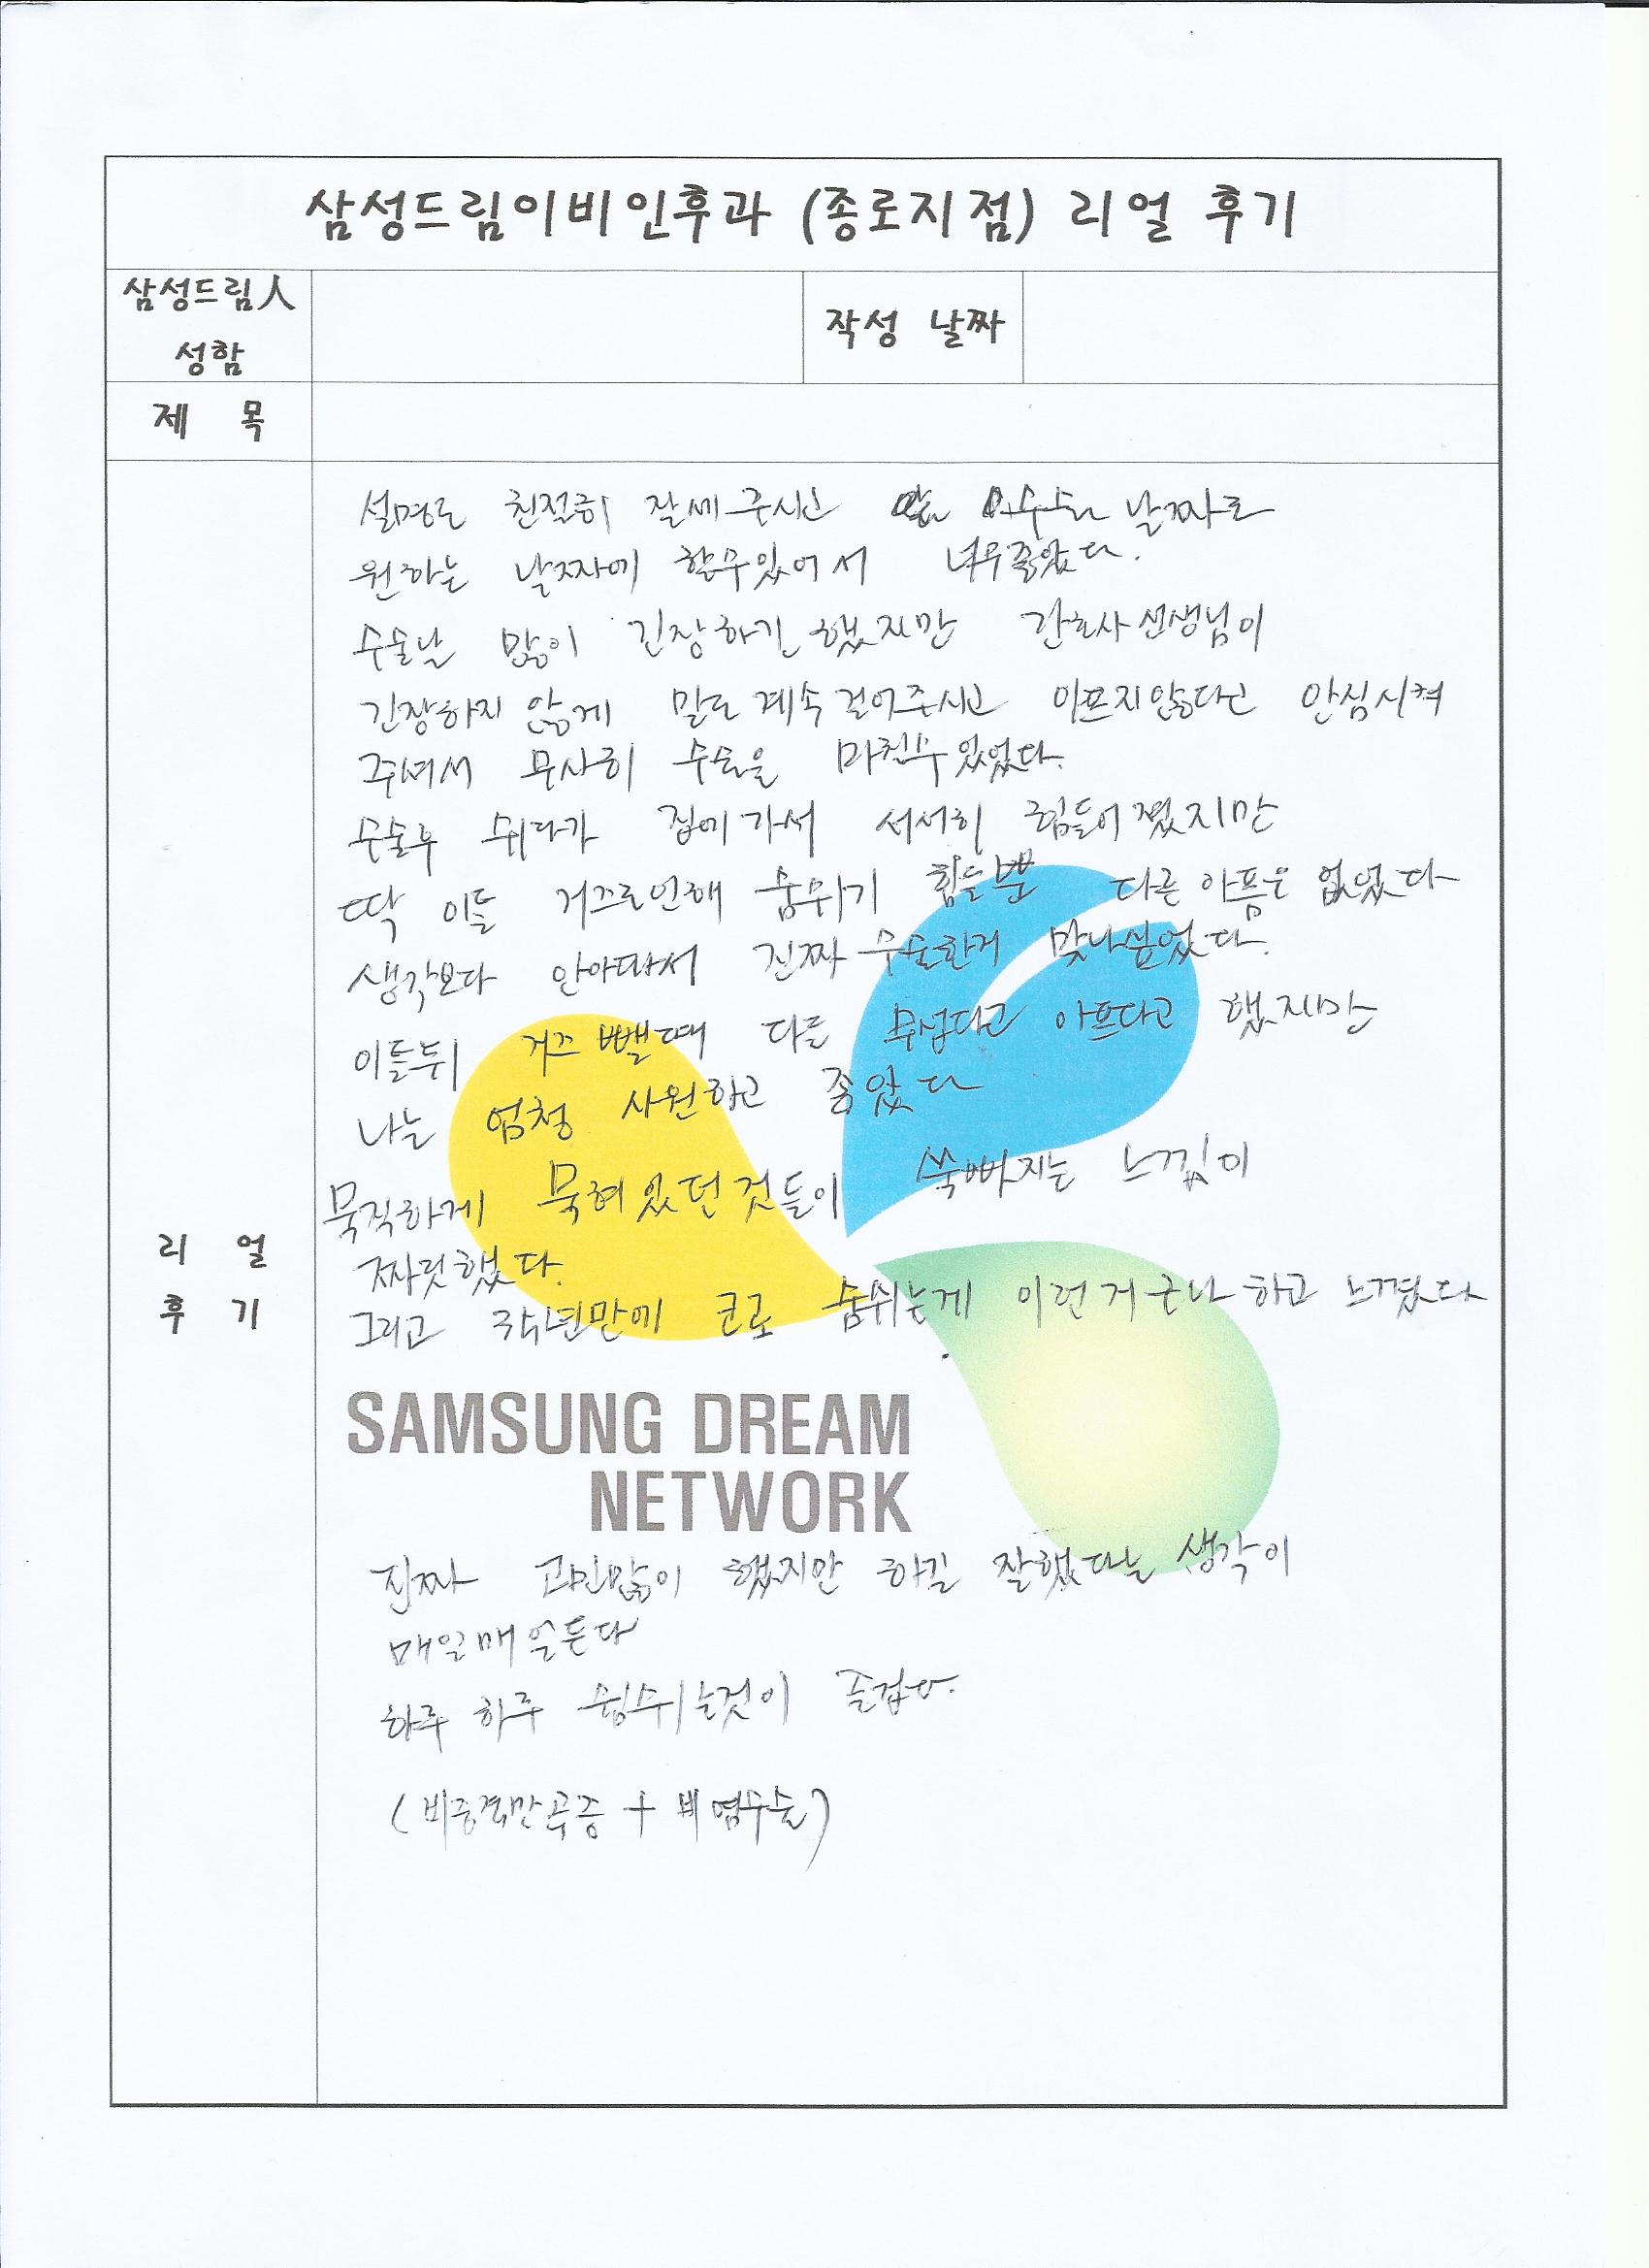 삼성드림이비인후과 (종로지점) 리얼 후기
삼성드림人
성함
작성 날짜
제 목
설명도 친절히 잘해주시고 수술 날짜도
원하는 날짜에 할수있어서 너무좋았다.
수술날 많이 긴장하긴 했지만 간호사 선생님이
긴장하지 않게 말도 계속 걸어주시고 아프지않다고 안심시켜
주셔서 무사히 수술을 마칠수 있었다.
수술후 쉬다가 집에가서 서서히 힘들어 졌지만
딱 이틀 거즈로인해 숨쉬기 힘들뿐 다른 아픔은 없었다
생각보다 안아파서 진짜 수술한게 맞나싶었다.
이틀뒤 거즈 뺄때 다들 무섭다고 아프다고 했지만
나는 엄청 시원하고 좋았다
묵직하게 묵혀있던것들이 쑥빠지는 느낌이
짜릿했다.
그리고 년만에 코로 숨쉬는게 이런거구나 하고 느꼈다
리 얼
후 기
SAMSUNG DREAM
NETWORK
진짜 고민많이 했지만 하길 잘했다는 생각이
매일매일든다
하루 하루 숨쉬는것이 즐겁다.
(비중격만곡증 + 비염수술)